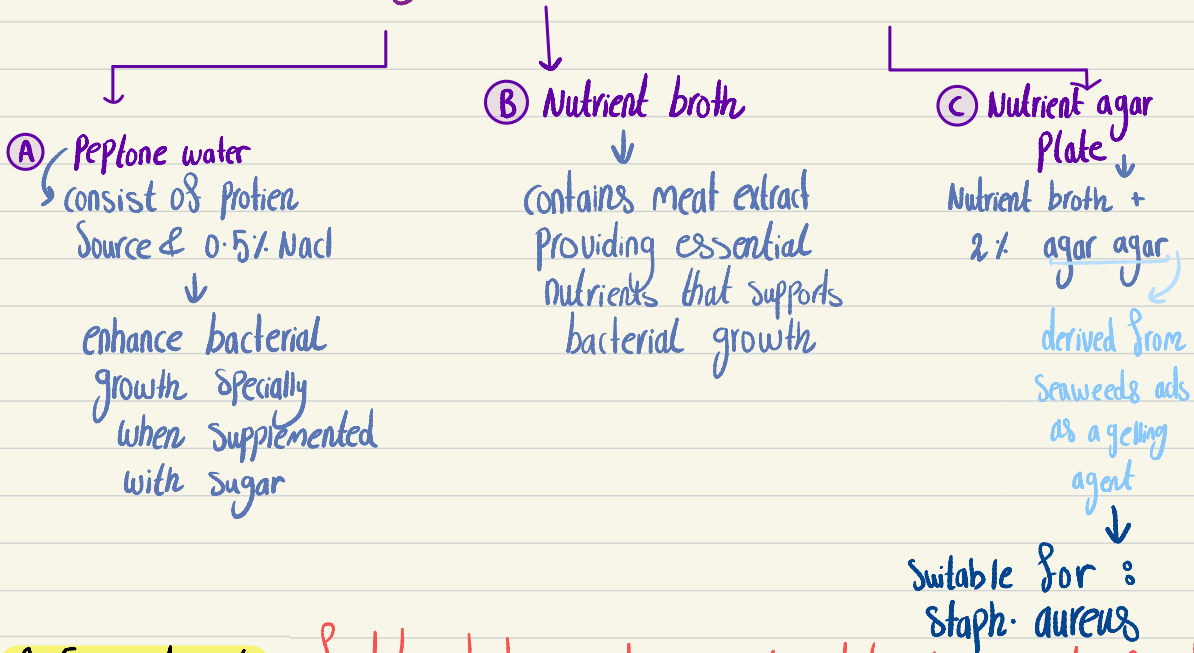 Ⓐ Peptone water
consist of Protien
Source & 0.5% Nacl
enhance bacterial
growth specially
when supplemented
with sugar
Ⓑ Nutrient broth
contains meat extract
Providing essential
nutrients that supports
bacterial growth
Ⓒ Nutrient agar
Plate
Nutrient broth +
2% agar agar
derived from
seaweeds acts
as a gelling
agent
Suitable for :
staph. aureus